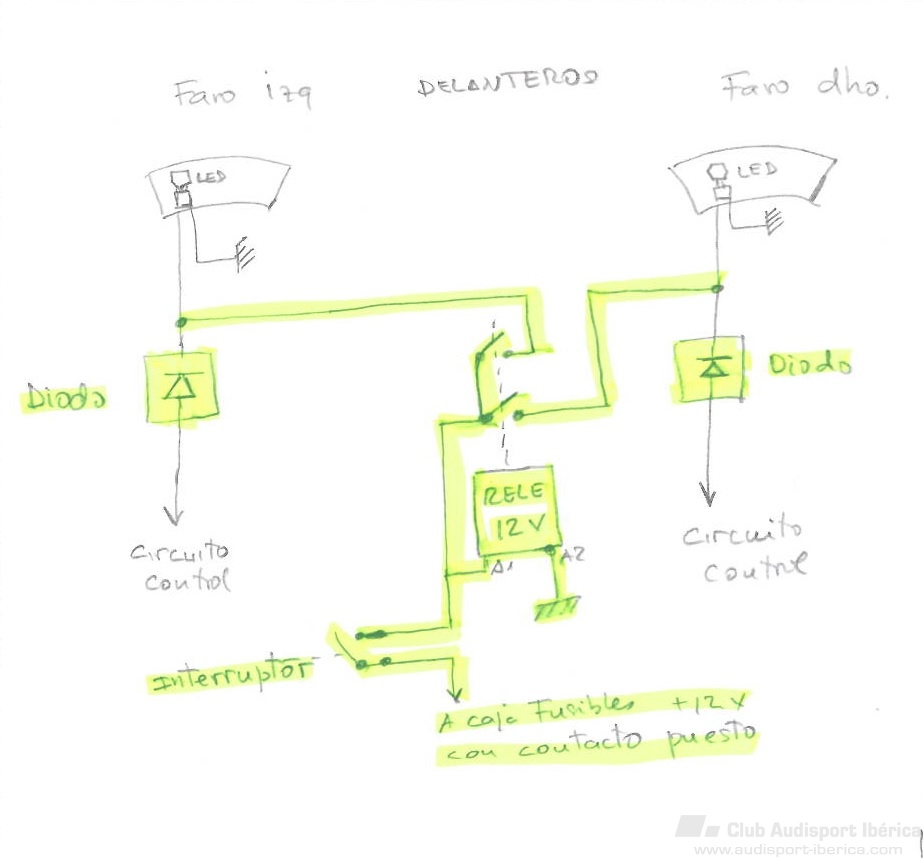 Faro izq
DELANTEROS
Faro dho.
LED
LED
Diodo
Diodo
RELE
12 V
A1
A2
Circuito
control
Circuito
control
Interruptor
A caja Fusibles +12 V
con contacto puesto
Club Audisport Ibérica
www.audisport-iberica.com